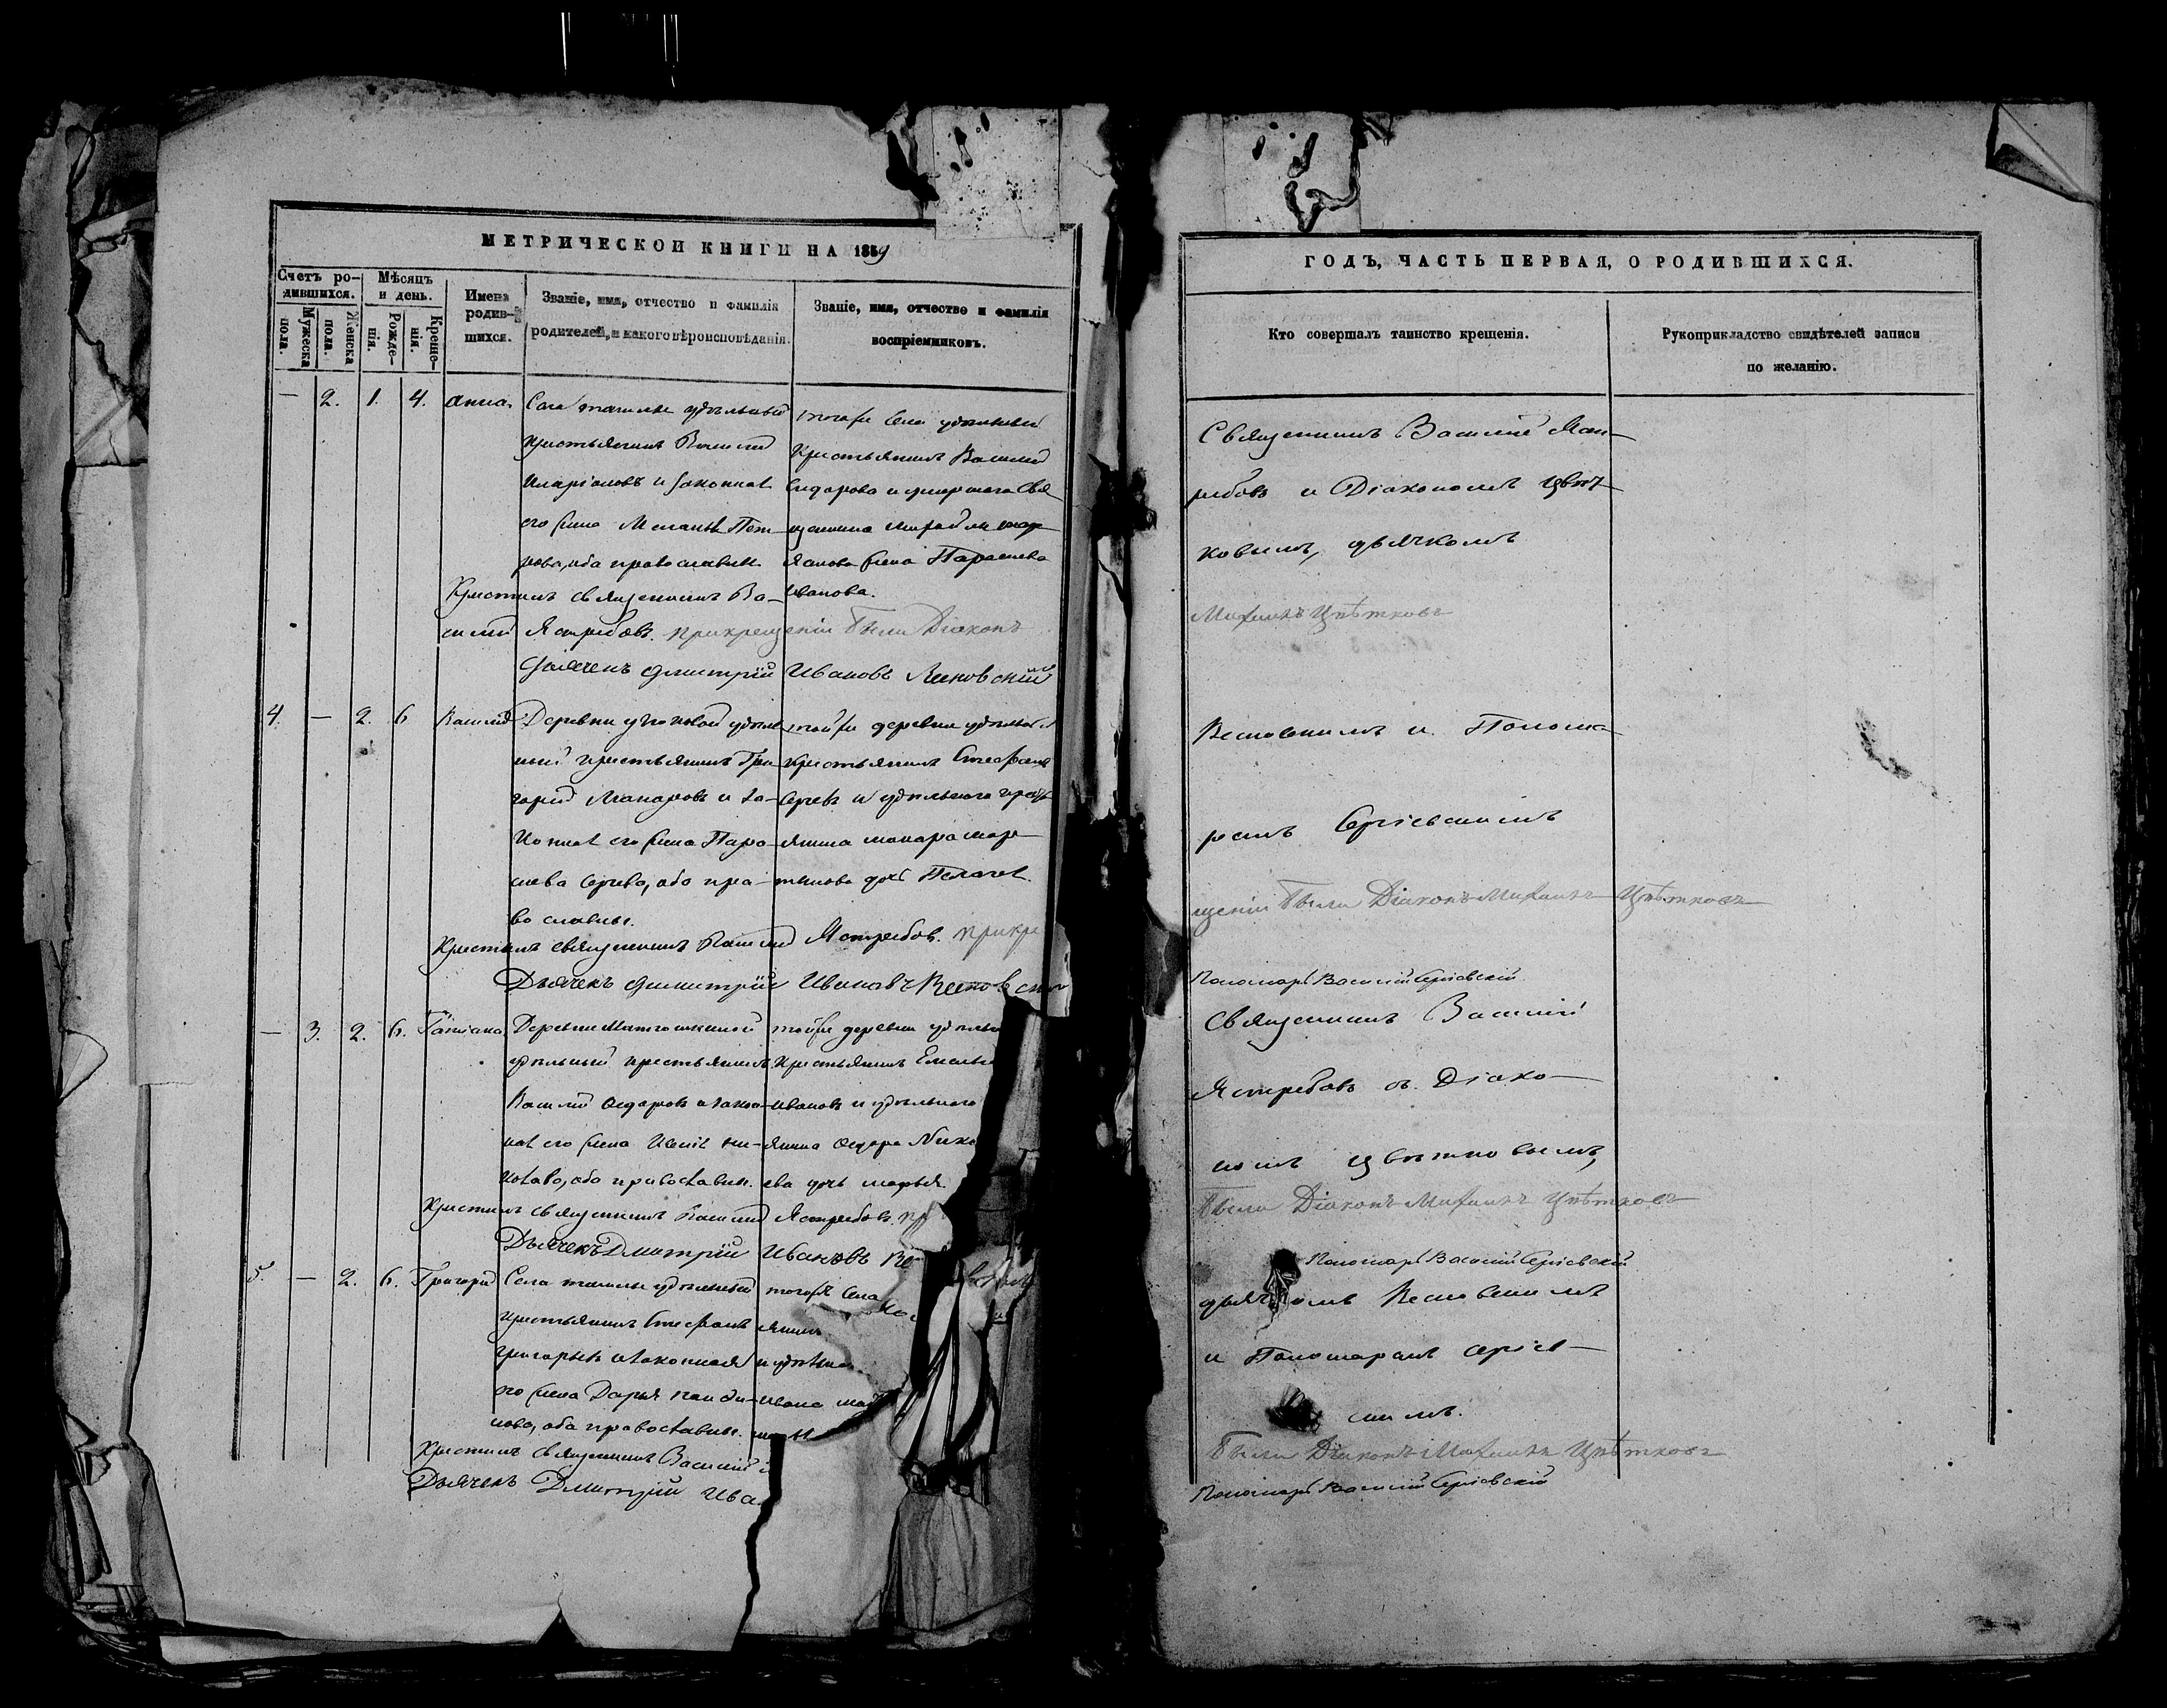 МЕТРИЧЕСКОЙ КНИГИ НА 1859
Счетъ ро-
дившихся.
Мужеска
пола.
Женска
пола.
Мѣсяцъ
и день.
Рожде-
нія.
Креще-
нія.
Имена
родив-
шихся.
Званіе, имя, отчество и фамилія
родителей, и какого вѣроисповѣданія.
Званіе, имя, отчество и фамилія
воспріемниковъ.
— 2. 1. 4. Анна.
Села удѣльный
крестьянинъ Василий
Иларіоновъ и законная
его жена Меланья Пет-
рова, оба православные.
тогоже села удѣльный
крестьянинъ Василий
Сидоровъ и свя-
щенника
жена Параскева
Иванова.
Крестилъ священникъ Ва-
силий Ястребовъ. при крещеніи были Діаконъ
Дьячекъ Дмитрій Ивановъ
4. — 2. 6 Василий
Деревни удѣль-
ный крестьянинъ Гри-
горий Макаровъ и за-
конная его жена Пара-
скева Сергѣева, оба пра-
вославные.
тойже деревни удѣльный
крестьянинъ Стефанъ
Сергѣевъ и удѣльного крестья-
янина Макара Мар-
тынова дочь Пелагея.
Крестилъ священникъ Василий Ястребовъ. при кре
Дьячекъ Димитрій Ивановъ
— 3. 2. 6. Татіана
Деревни
удѣльный крестьянинъ
Василий Федоровъ и закон-
ная его жена
оба православны.
тойже деревни удѣльн
крестьянинъ Емельян
Ивановъ и удѣльного
янина Федора Нико
ева дочь Марья.
Крестилъ священникъ Василий Ястребовъ. пр
Дьячекъ Дмитрій Ивановъ
5. — 2. 6. Григорий
Села удѣльный
крестьянинъ Стефанъ
Григорьевъ и законная
его жена Дарья
нова, оба православные.
тогоже села
янинъ
и удѣльн
Ивана
Крестилъ священникъ Василий
Дьячекъ Дмитрій Ива
ГОДЪ, ЧАСТЬ ПЕРВАЯ, О РОДИВШИХСЯ.
Кто совершалъ таинство крещенія.
Рукоприкладство свидѣтелей записи
по желанію.
Священникъ Василий Яст-
ребовъ и Діакономъ Цвѣт-
ковымъ, дьячкомъ
Михаилъ Цвѣтковъ
и Понома-
ремъ Сергіевскимъ
щеніи были Діаконъ Михаилъ Цвѣтковъ
Пономарь Василий Сергіевскій
Священникъ Василий
Ястребовъ съ Діако-
номъ Цвѣтковымъ,
были Діаконъ Михаилъ Цвѣтковъ
Пономарь Василий Сергіевскій
дьячкомъ
и Пономаремъ Сергіев-
скимъ.
были Діаконъ Михаилъ Цвѣтковъ
Пономарь Василий Сергіевскій